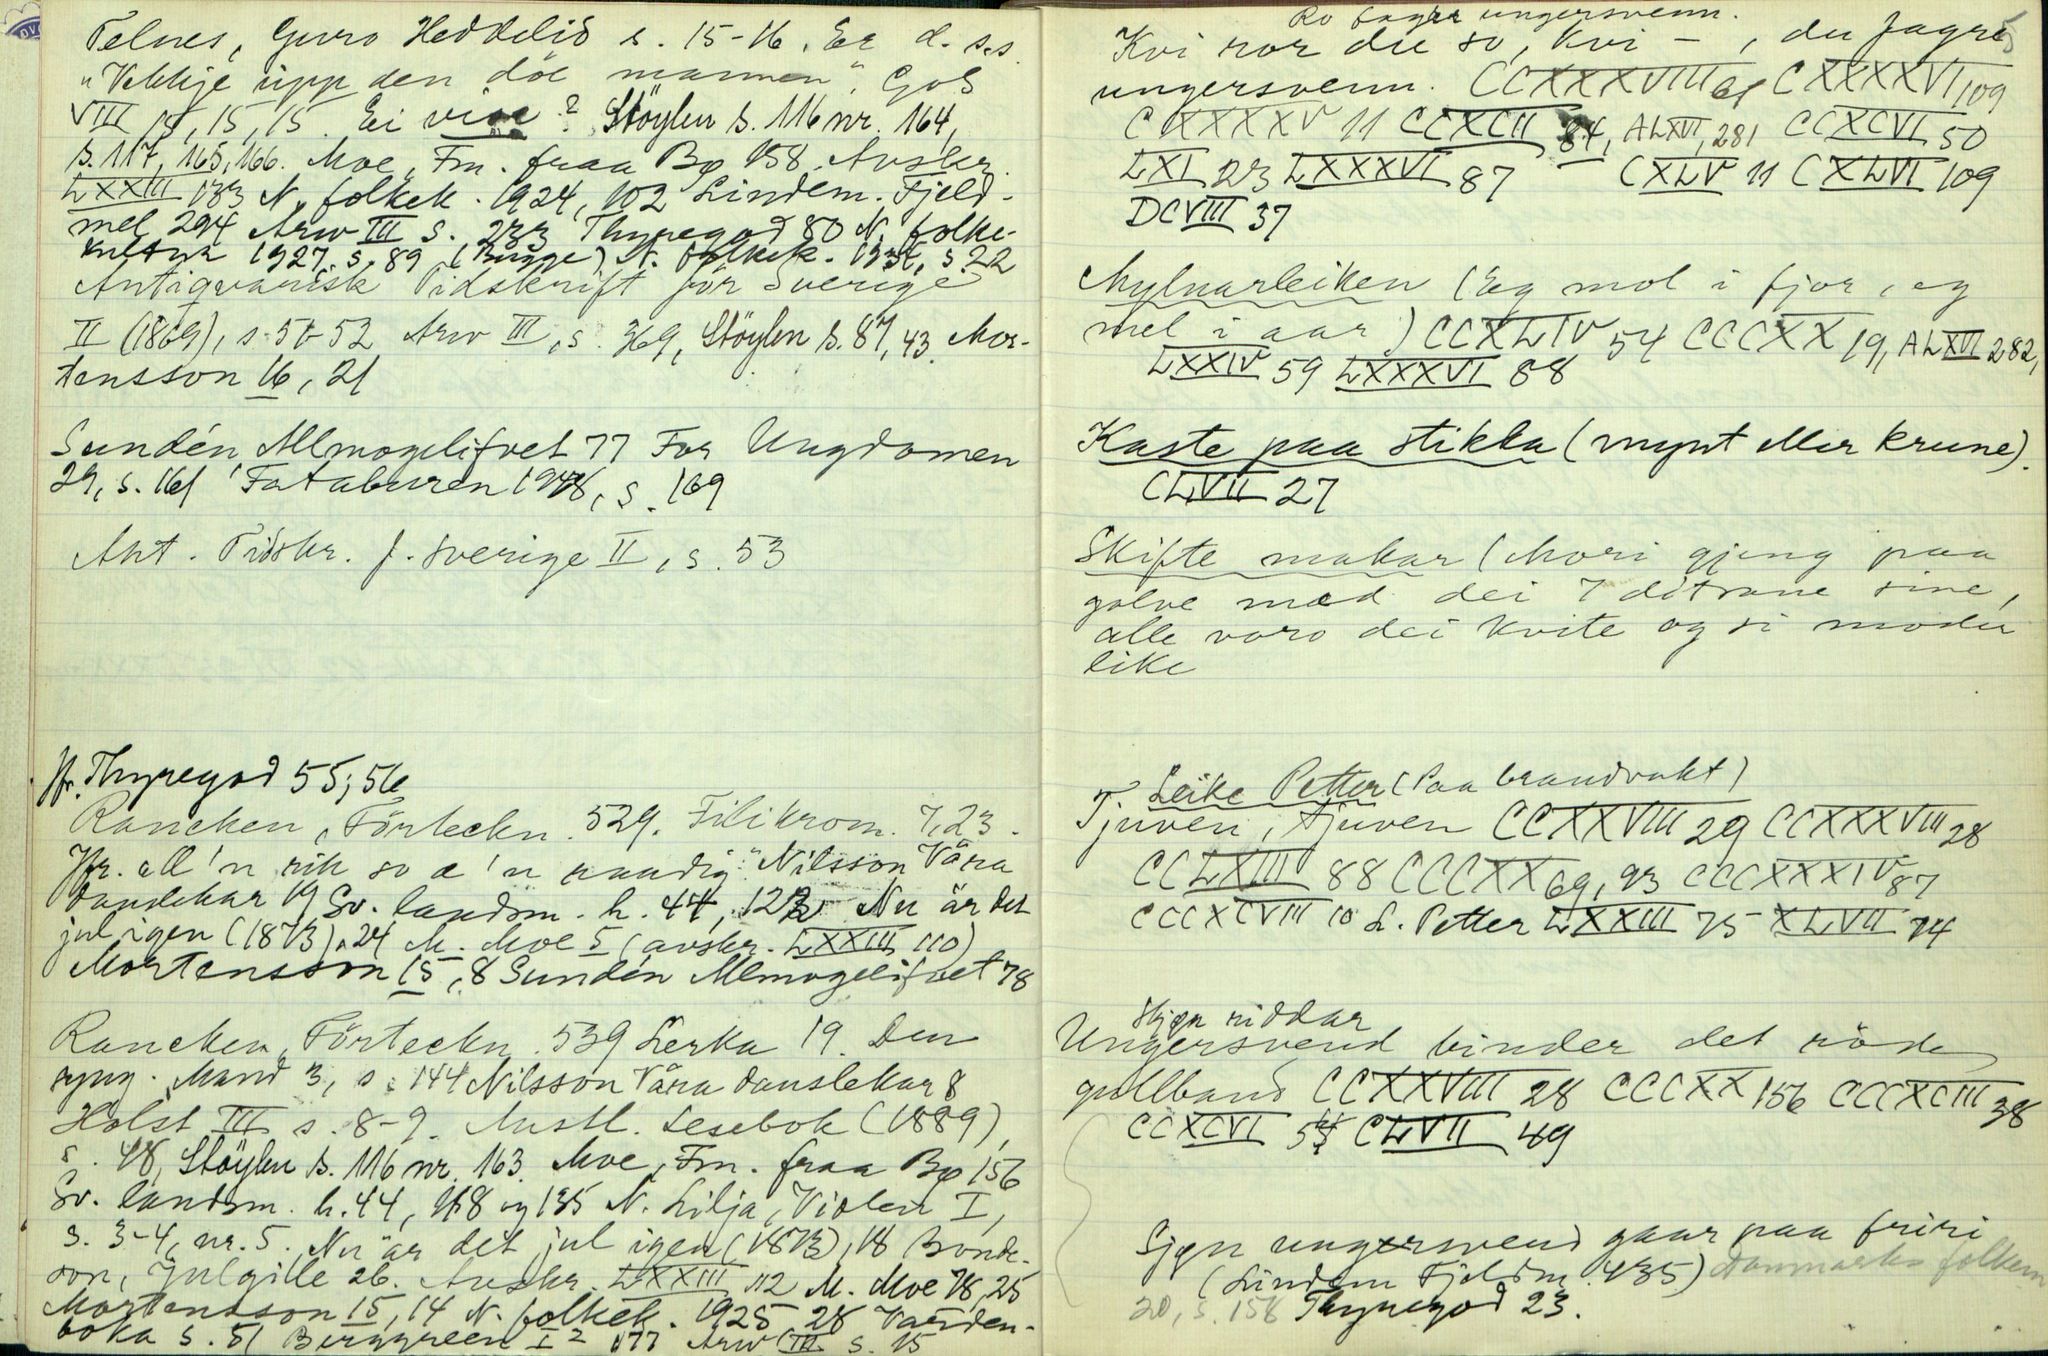 Telnes, Guro Heddelid s. 15-16. Er d. s.s.
"Vekkje upp den döe mannen". Gols
VIII 15, 15, 15. Ei vise? Støylen s. 116 nr. 164,
s. 117, 165, 166. Moe, Fm. fraa Bø 158. Avskr.
LXXIII 133 N. folkek. 1924, 102 Lindem. Fjeld-
mel 294 Arw III s. 233 Thyregod 80 N. folke-
kultur 1927, s. 89 (Bugge) N. folkek. s 22
Antiqvarisk Tidskrift för Sverige
II (1869), s. 50-52 Arw III, s. 369, Støylen s. 87, 43. Mor-
tensson 16, 21
Sundén Allmogelifvet 77 For Ungdomen
29, s. 161 Fataburen 1948, s. 169
Ant. Tidskr. f. Sverige II, s. 53
Jfr. Thyregod 55, 56
Rancken, Förteckn. 529. Filikrom. 7, 23.
Jfr. "All'n rik so æ'n naadig". Nilsson Våra
danslekar 19 Sv. landsm. h. 44, 123 Nu är det
jul igen (1873) 24 M. Moe 5 (avskr. LXXIII 110)
Mortensson 15, 8 Sundén Allmogelifvet 78
Rancken, Förteckn. 539 Lerka 19. Den
syng. Mand 3, s. 144 Nilsson Våra danslekar 8
Holst III s. 8-9. Austl. Lesebok (1889),
s. 48, Støylen s. 116 nr. 163. Moe, Fm. fraa Bø 156
Sv. landsm. h. 44, 118 og 135 N. Lilja, Violen I,
s. 3-4, nr. 5. Nu är det jul igen (1873), 18 Bonde-
son, Julgille 26. Avskr. LXXIII 112 M. Moe 78, 25
Mortensson 15, 14 N. folkek. 1925 28 Varden-
boka s. 51 Berggreen I 2 177 Arw III s. 15
Ro fagra ungersvenn.
Kvi ror du so, kvi - , du fagre
ungersvenn. CCXXXVIII 61 CXXXXVI 109
CXXXXV 11 CCXCII 84, ALXVI, 281 CCXCVI 50
LXI 23 LXXXVI 87 CXLV 11 CXLVI 109
DCVIII 37
Mylnarleiken (Eg mol i fjor, eg
mel i aar) CCXLIV 54 CCCXX 19, ALXVI 282,
LXXIV 59 LXXXVI 88
Kaste paa stikka (mynt eller krune).
CLVII 27
Skifte makar (Mori gjeng paa
golve med dei 7 dötrane sine,
alle varo dei kvite og si moder
like
Leike Petter (Paa brandvakt)
Tjuven, tjuven CCXXVIII 29 CCXXXVIII 28
CCLXIII 88 CCCXX 69, 93 CCCXXXIV 87
CCCXCVIII 10 L. Petter LXXIII 75 XLVII 74
Skjøn riddar
Ungersvend binder det röde
gullband CCXXVIII 28 CCCXX 156 CCCXCIII 38
CCXCVI 54 CLVII 49
Sjøn ungersvend gaar paa friri
(Lindem Fjeldm. 435) Danmarks folkem
20, s. 158 Thyregod 23.